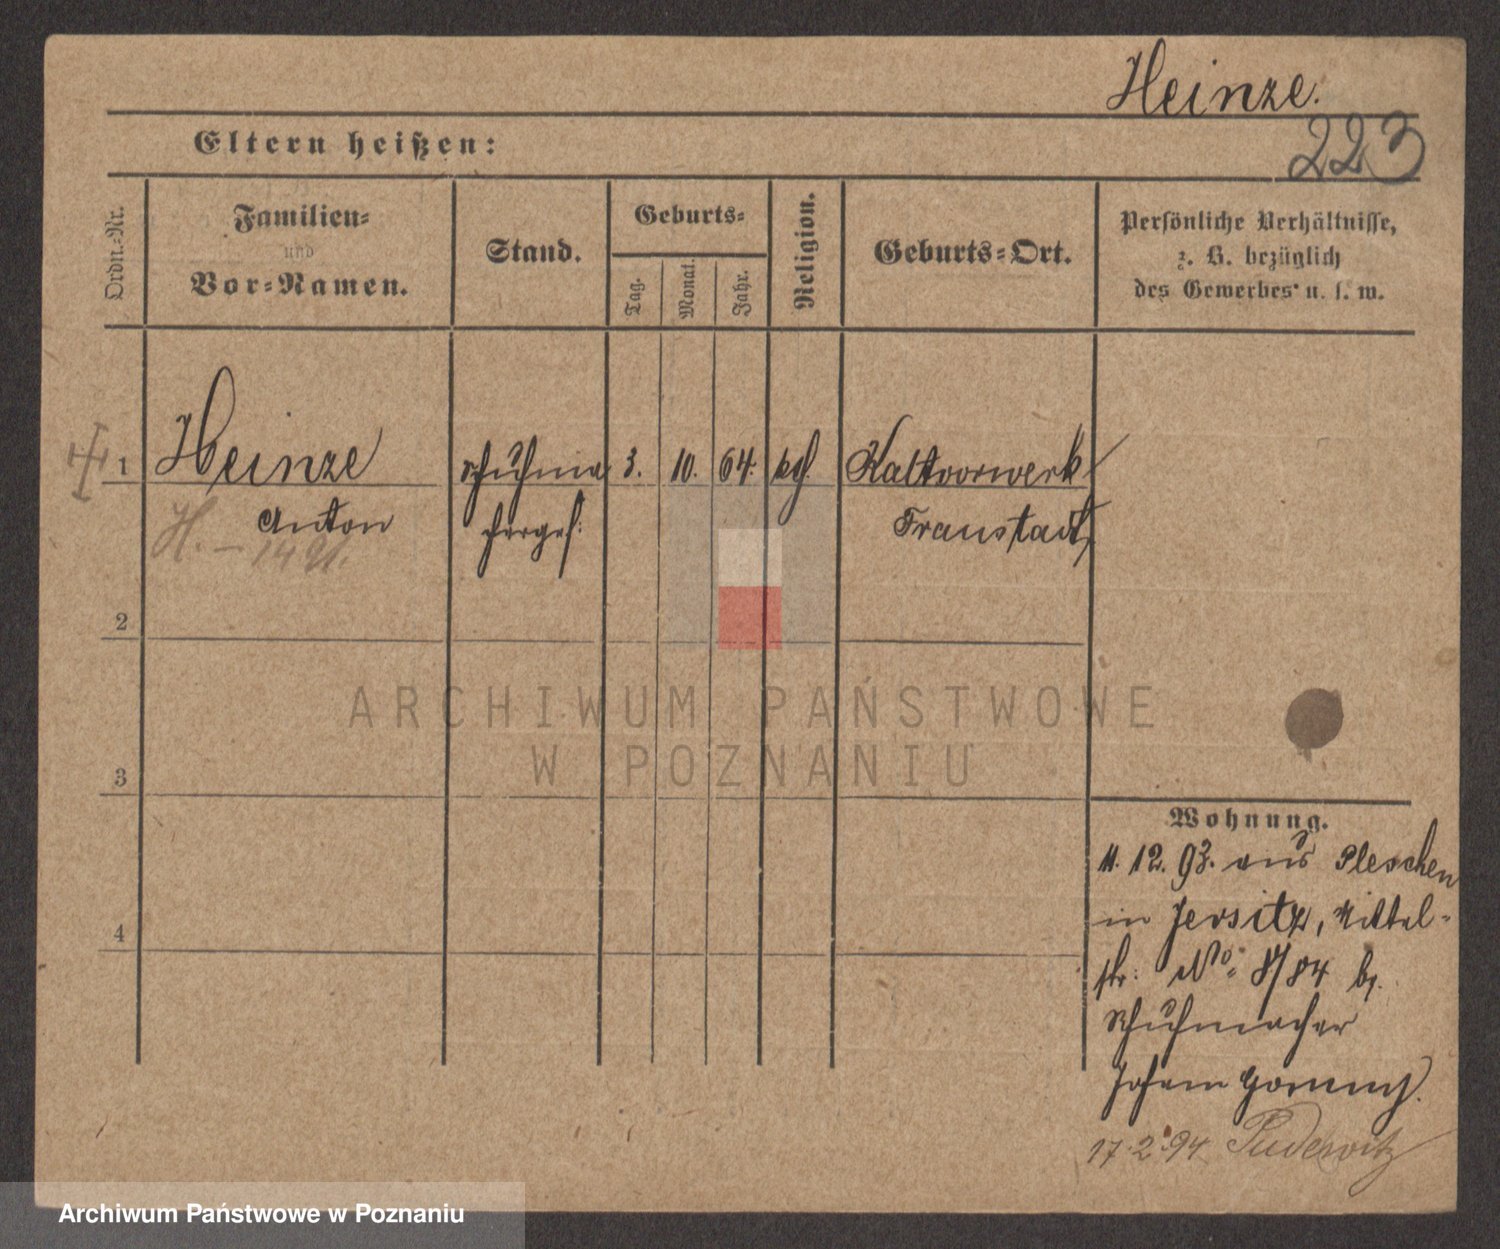 Heinze.
223
Eltern heißen:
Ordn.-Nr.
Familien-
und
Vor-Namen.
Stand.
Geburts-
Tag.
Monat.
Jahr.
Religion.
Geburts-Ort.
Persönliche Verhältnisse,
z. B. bezüglich
des Gewerbes u. s. w.
1 Heinze Schuhma 3. 10. 64. Kaltvorwerk
Anton chergs. Fraustadt
H.
2
3
4
ARCHIWUM PAŃSTWOWE
W POZNANIU
Wohnung.
11. 12. 93. aus Pleschen
in Jersitz, Mittel-
str. No. 8/84 b.
Schuhmacher
Johann
17.2.94 Pudewitz
Archiwum Państwowe w Poznaniu